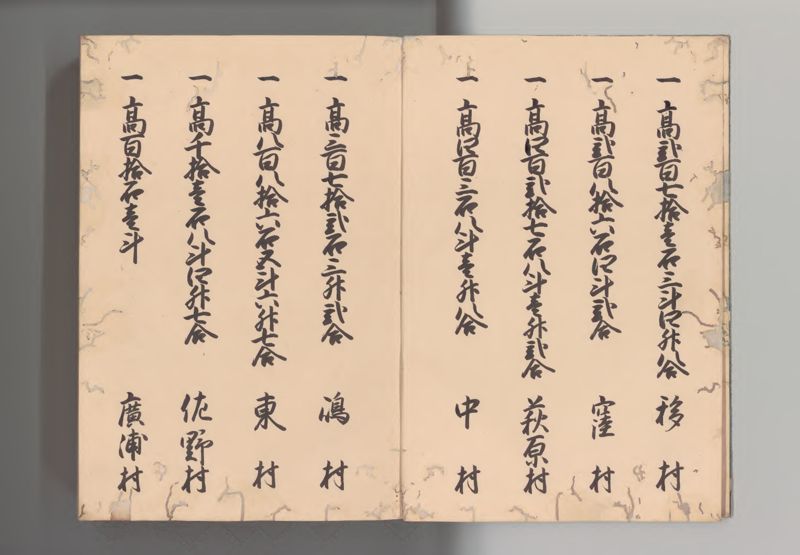 一 高弐百七拾壱石三斗四升八合 移村
一 高弐百八拾六石四斗弐合 窪村
一 高四百弐拾七石八斗壱升弐合 萩原村
一 高四百三石八斗壱升八合 中村
一 高三百七拾弐石三升弐合 嶋村
一 高八百八拾六石五斗六升七合 東村
一 高千拾壱石八斗四升七合 佐野村
一 高百拾石壱斗 廣浦村